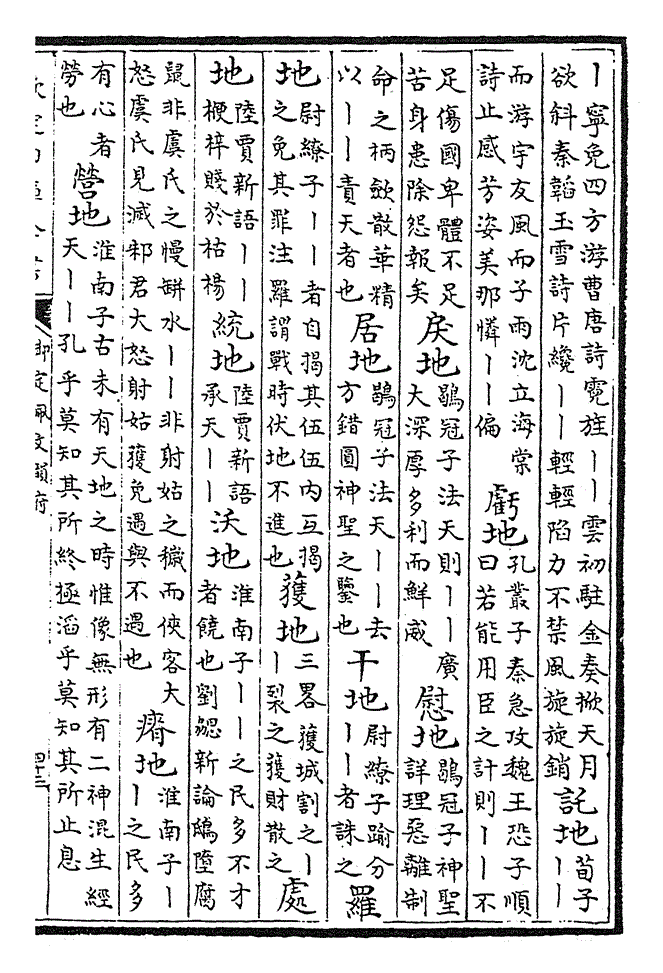 丨寧免四方游曹唐詩霓旌丨丨雲初駐金奏掀天月
欲斜秦韜玉雪詩片纔丨丨輕輕陷力不禁風旋旋銷託地荀子
丨丨
而游宇友風而子雨沈立海棠
詩止感芳姿美那憐丨丨偏虧地孔叢子秦急攻魏王恐子順
曰若能用臣之計則丨丨不
足傷國卑體不足
苦身患除怨報矣戾地鶡冠子法天則丨丨廣
大深厚多利而鮮威慰地鶡冠子神聖
詳理惡離制
命之柄斂散華精
以丨丨責天者也居地鶡冠子法天丨丨去
方錯圓神聖之鑒也干地尉繚子踰分
丨丨者誅之羅
地尉繚子丨丨者自揭其伍伍內互揭
之免其罪注羅謂戰時伏地不進也獲地三畧獲城割之丨
丨裂之獲財散之處
地陸賈新語丨丨
梗梓賤於枯楊統地陸賈新語
承天丨丨沃地淮南子丨丨之民多不才
者饒也劉勰新論鴟墮腐
鼠非虞氏之慢缾水丨丨非射姑之穢而俠客大
怒虞氏見滅邾君大怒射姑獲免遇與不遇也瘠地淮南子丨
丨之民多
有心者
勞也營地淮南子古未有天地之時惟像無形有二神混生經
天丨丨孔乎莫知其所終極滔乎莫知其所止息
御定佩文韻府